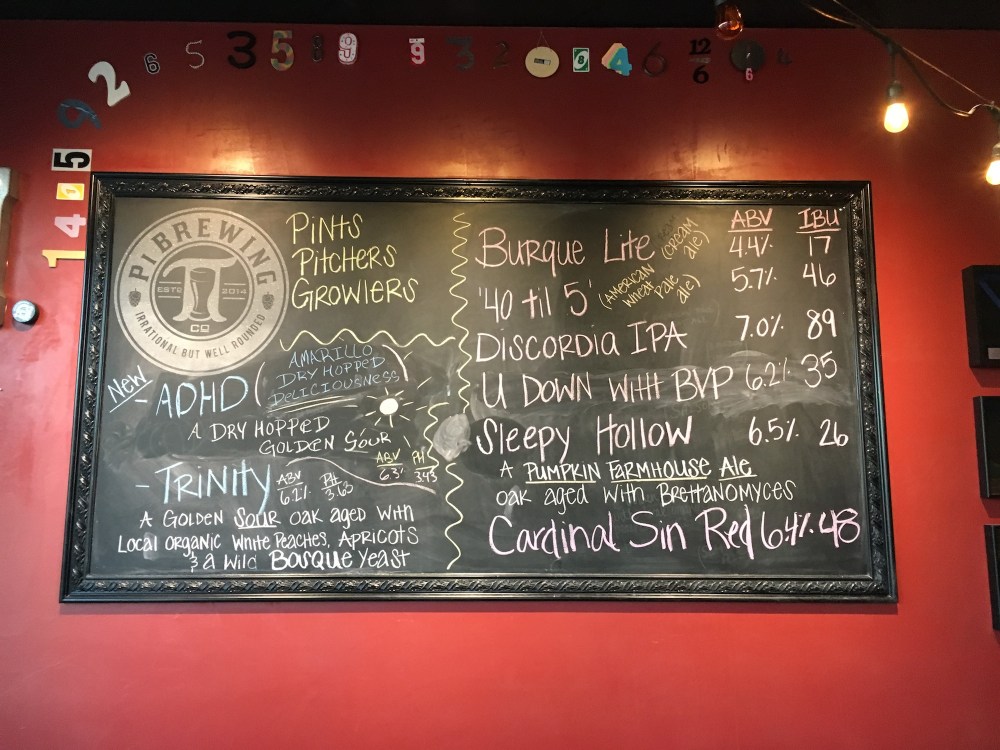 1 4 1 5 9 2 6 5 3 5 8 9 9 3 2 8 4 6 12 6 6 4
PI BREWING
ESTD 2014
CO
IRRATIONAL BUT WELL ROUNDED
PINTS
PITCHERS
GROWLERS
NEW
- ADHD (AMARILLO
DRY HOPPED
DELICIOUSNESS)
A DRY HOPPED
GOLDEN SOUR
ABV PH
6.3% 3.43
- TRINITY ABV PH
6.2% 3.63
A GOLDEN SOUR OAK AGED WITH
LOCAL ORGANIC WHITE PEACHES, APRICOTS
& a WILD BASQUE YEAST
ABV IBU
Burque Lite (CREAM ale) 4.4% 17
'40 til 5' (AMERICAN wheat Pale ale) 5.7% 46
DISCORDIA IPA 7.0% 89
U DOWN WITH BVP 6.2% 35
Sleepy Hollow 6.5% 26
A PUMPKIN FARMHOUSE Ale
oak aged with BRETTANOMYCES
Cardinal Sin Red 6.4% 48